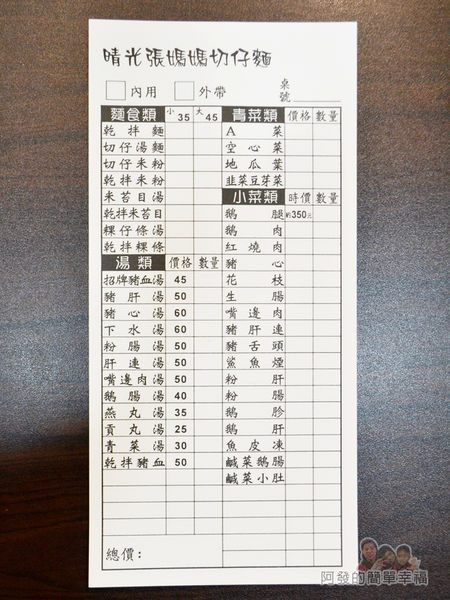 晴光張媽媽切仔麵
內用 外帶 桌號
麵食類 小35 大45
乾拌麵
切仔湯麵
切仔米粉
乾拌米粉
米苔目湯
乾拌米苔目
粿仔條湯
乾拌粿條
湯類 價格 數量
招牌豬血湯 45
豬肝湯 50
豬心湯 60
下水湯 60
粉腸湯 50
肝連湯 50
嘴邊肉湯 50
鵝腸湯 40
燕丸湯 35
貢丸湯 25
青菜湯 30
乾拌豬血 50
總價:
青菜類 價格 數量
A菜
空心菜
地瓜葉
韭菜豆芽菜
小菜類 時價 數量
鵝腿 約350元
鵝肉
紅燒肉
豬心
花枝
生腸
嘴邊肉
豬肝連
豬舌頭
鯊魚煙
粉肝
粉腸
鵝胗
鵝肝
魚皮凍
鹹菜鵝腸
鹹菜小肚
阿發的簡單幸福